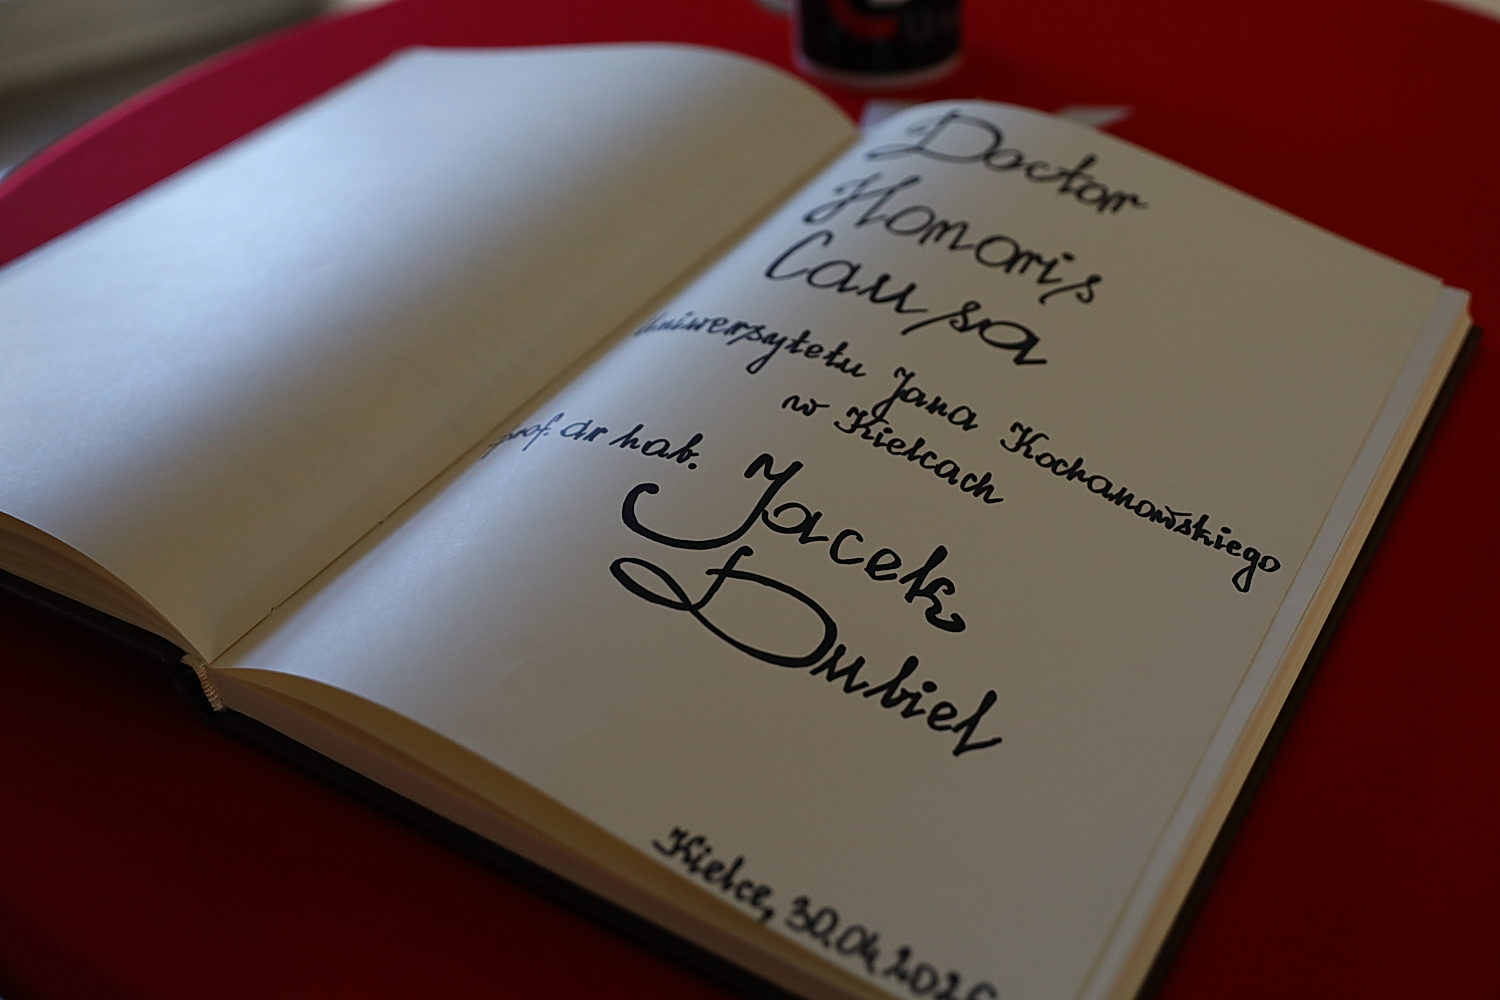 Doctor
Honoris
Causa
Uniwersytetu Jana Kochanowskiego
w Kielcach
prof. dr hab. Jacek
Dubiel
Kielce, 30.04.2026